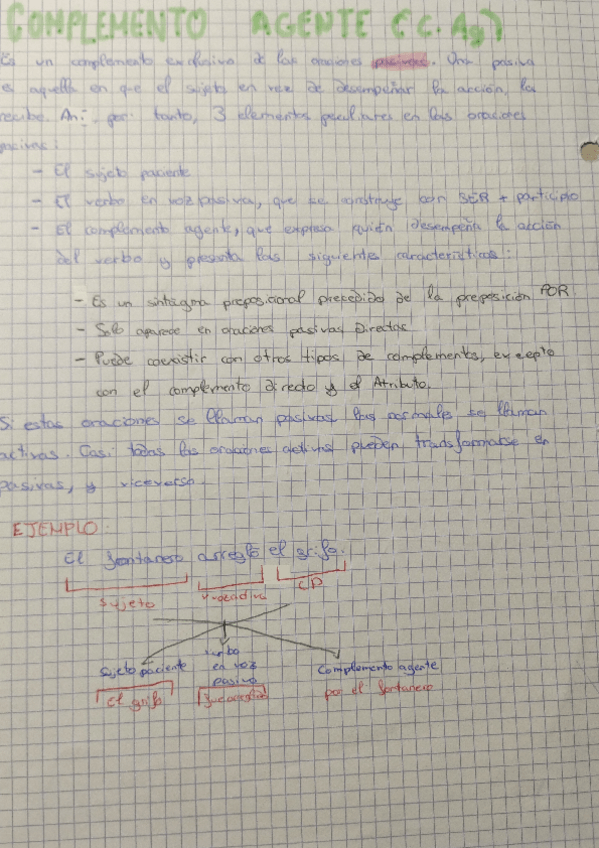 COMPLEMENTO AGENTE (C. Ag)
Es un complemento exclusivo de las oraciones pasivas. Orn pasiva
es aquella en que el sujeto en vez de desempeñar la acción, la
recibe. Así, por tanto, 3 elementos peculiares en las oraciones
pasivas:
- El sujeto paciente
- El verbo en voz pasiva, que se construye con SER + participio
- El complemento agente, que expresa quién desempeña la acción
del verbo y presenta las siguientes características:
- Es un sintagma preposicional precedido de la preposición POR
- Solo aparece en oraciones pasivas Directas
- Puede coexistir con otros tipos de complementos, excepto
con el complemento Directo y el Atributo.
Si estas oraciones se llaman pasivas, las normales se llaman
activas. Casi todas las oraciones activas pueden transformarse en
pasivas, y viceversa.
EJEMPLO:
El fontanero arregló el grifo.
Sujeto V. activa CD
sujeto paciente verbo en voz pasiva Complemento agente
El grifo fue arreglado por el fontanero